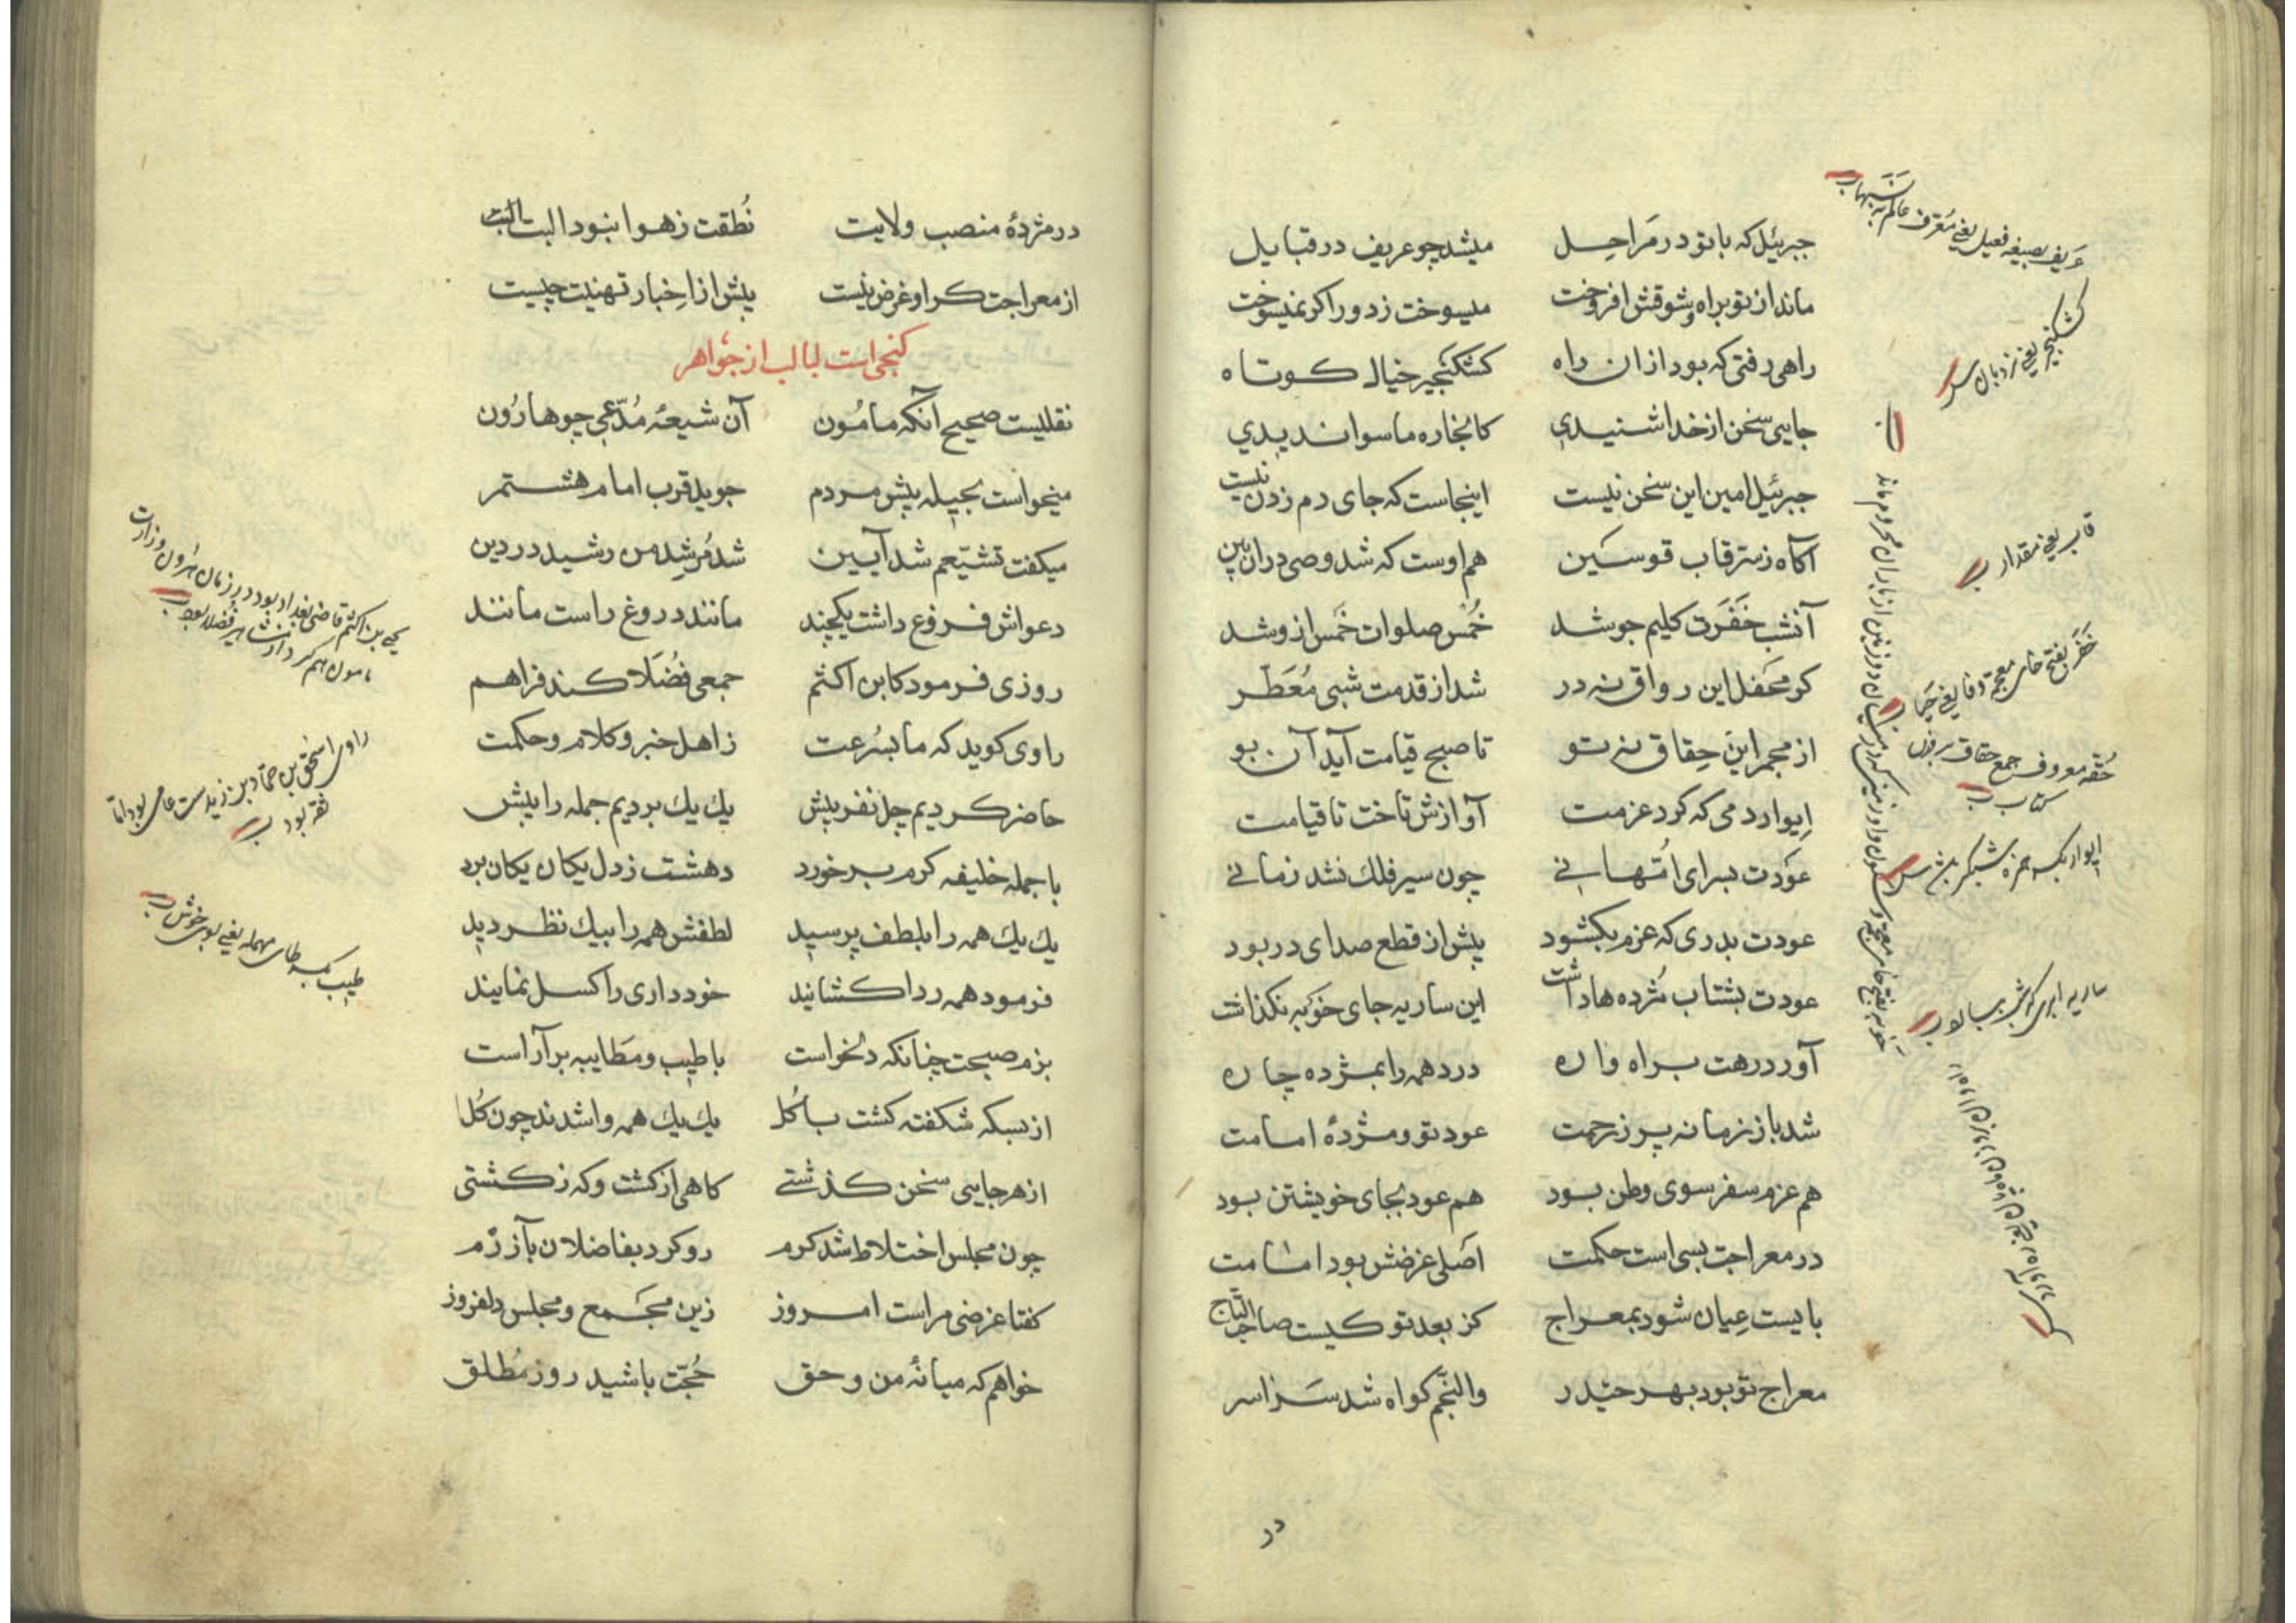 جبرئیل که با تو در مراحل میشد چو عریف در قبایل
ماند از تو براه و شوقش افروخت میسوخت ز دور اکر نمیسوخت
راهی رفتی که بود ازان راه کشکنجیر خیال کوتاه
جایی سخن از خدا شنیدی کانجاره ماسوا ندیدی
جبرئیل امین این سخن نیست اینجاست که جای دم زدن نیست
آکاه ز سر قاب قوسین هم اوست که شد وصی دران بین
آنشب خفرت کلیم جو شد خمس صلوات خمس ازو شد
کر محفل این رواق نه در شد از قدمت شبی معطر
از مجمر این حقاق نه تو تا صبح قیامت آید آن بو
ایوار دمی که کرد عزمت آوازش تاخت تا قیامت
عودت بسرای امهانی چون سیر فلک نشد زمانی
عودت بدری که عزم بکشود پیش از قطع صدای در بود
عودت بشتاب مژده ها داشت این ساریه جای خوبه نکذاشت
آورد رهت براه واره درد همه را بمژده چاره
شد باز زمانه پر ز رحمت عود تو و مژدهٔ امامت
هم عزم سفر سوی وطن بود هم عود بجای خویشتن بود
در معراجت بسی است حکمت اصلی غرضش بود امامت
بایست عیان شود بمعراج کز بعد تو کیست صاحب التاج
معراج تو بود بهر حیدر والنجم کواه شد سراسر
در
عریف بصیغه فعیل یعنی معرف
کشکنجیر یعنی نردبان
قاب یعنی مقدار
خفر بفتح خای معجمه و فا یعنی حیا
حقه معروف جمع حقاق بر وزن کتاب
ایوار بکسر همزه شبکیر
در مژدهٔ منصب ولایت نطقت ز هوا نبود البت البت
از معراجت کرا و غرض نیست پیش از اخبار تهنیت چیست
کنجی است لبالب از جواهر
نقلیست صحیح آنکه مامون آن شیعهٔ مدعی چو هارون
میخواست بحیله پیش مردم جوید قرب امام هشتم
میکفت تشیعم شد آیین شد مرشد من رشید در دین
دعواش فروغ داشت یکچند مانند دروغ راست مانند
روزی فرمود کابن اکثم جمعی فضلا کند فراهم
راوی کوید که ما بسرعت ز اهل خبر و کلام و حکمت
حاضر کردیم چل نفر پیش یک یک بردیم جمله را پیش
با جمله خلیفه کرم بر خورد دهشت ز دل یکان یکان برد
یک یک همه را بلطف پرسید لطفش همه را بیک نظر دید
فرمود همه ردا کشانید خودداری را کسل نمایید
بزم صحبت چنانکه دلخواست با طیب و مطایبه بر آراست
از بسکه شکفته کشت با کل یک یک همه وا شدند چون کل
از هر جایی سخن کذشتی کاهی از کشت و که ز کشتی
چون مجلس اختلاط شد کرم رو کرد بفاضلان بآزرم
کفتا غرضی مراست امروز زین مجمع و مجلس دلفروز
خواهم که میانهٔ من و حق حجت باشید روز مطلق
یحیی بن اکثم قاضی بغداد بود در زمان هارون
راوی اسحق بن حماد بن زیدست عامی بود اما
ثقه بود
طیب بکسر طای مهمله یعنی بوی خوش